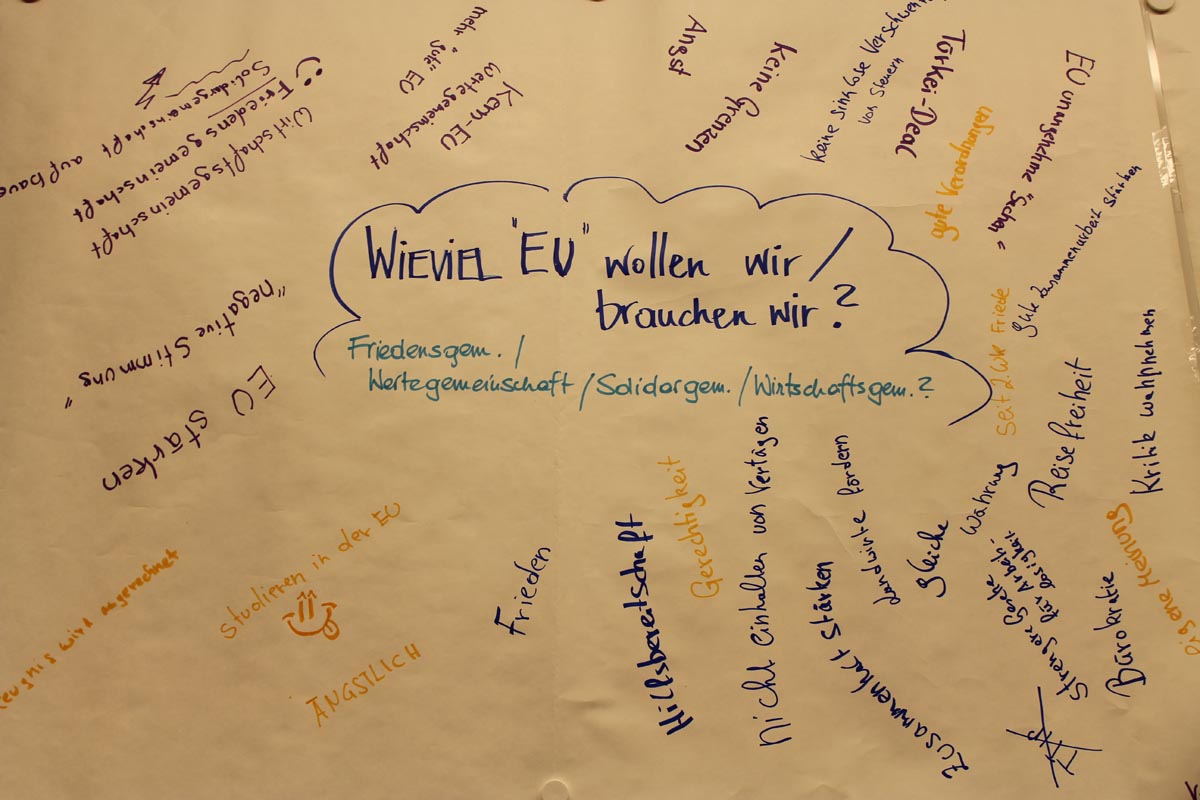 WIEVIEL "EU" wollen wir /
brauchen wir?
Friedensgem. /
Wertegemeinschaft / Solidargem. / Wirtschaftsgem.?
mehr "gute" EU
Kern-EU
Wertegemeinschaft
Angst
Keine Grenzen
keine sinnlose
von Steuern
Türkei-Deal
gute Verordnungen
EU unangenehme "Sachen"
gute Zusammenarbeit stärken
seit 2. WK Friede
Reisefreiheit
Kritik wahrnehmen
Solidargemeinschaft
Friedensgemeinschaft
Wirtschaftsgemeinschaft
"negative Stimmung"
EU stärken
wird angerechnet
Studieren in der EU
ÄNGSTLICH
Frieden
Hilfsbereitschaft
Gerechtigkeit
Nicht einhalten von Vertägen
Zusammenhalt stärken
Landwirte fördern
gleiche
Währung
Strengere Gesetze
für Arbeits-
losigkeit
Bürokratie
eigene Meinung